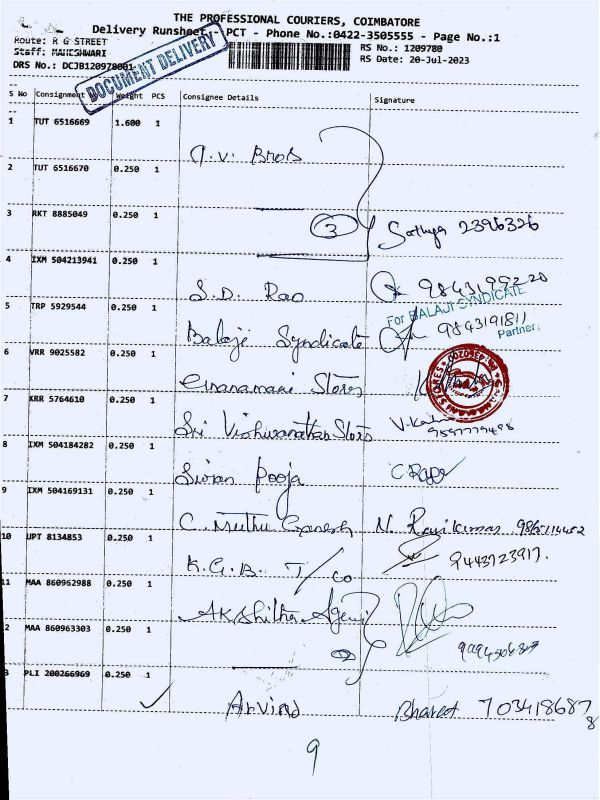 THE PROFESSIONAL COURIERS, COIMBATORE
Delivery Runsheet - PCT - Phone No.:0422-3505555 - Page No.:1
Route: R G STREET
Staff: MAHESHWARI
DRS No.: DCJB120978001
DOCUMENT DELIVERY
RS No.: 1209780
RS Date: 20-Jul-2023
S No Consignment Weight PCS Consignee Details Signature
1 TUT 6516669 1.600 1
2 TUT 6516670 0.250 1 A.V. Bros
3 RKT 8885049 0.250 1 3 Sathya 2396326
4 IXM 504213941 0.250 1 S.D. Rao 9843199220
For BALAJI SYNDICATE
5 TRP 5929544 0.250 1 Balaji Syndicate 9843191811
Partner.
6 VRR 9025582 0.250 1 Stores
7 KRR 5764610 0.250 1 Sri Vishwanathan Stores
8 IXM 504184282 0.250 1 Sivan Pooja
9 IXM 504169131 0.250 1 C. Muthu Ganesh N. Ravikumar
10 UPT 8134853 0.250 1 K.G.B. T/Co 9443723917.
11 MAA 860962988 0.250 1 Akshitha Agency
2 MAA 860963303 0.250 1 2
3 PLI 200266969 0.250 1 Arvind Bharat 7034186878
9